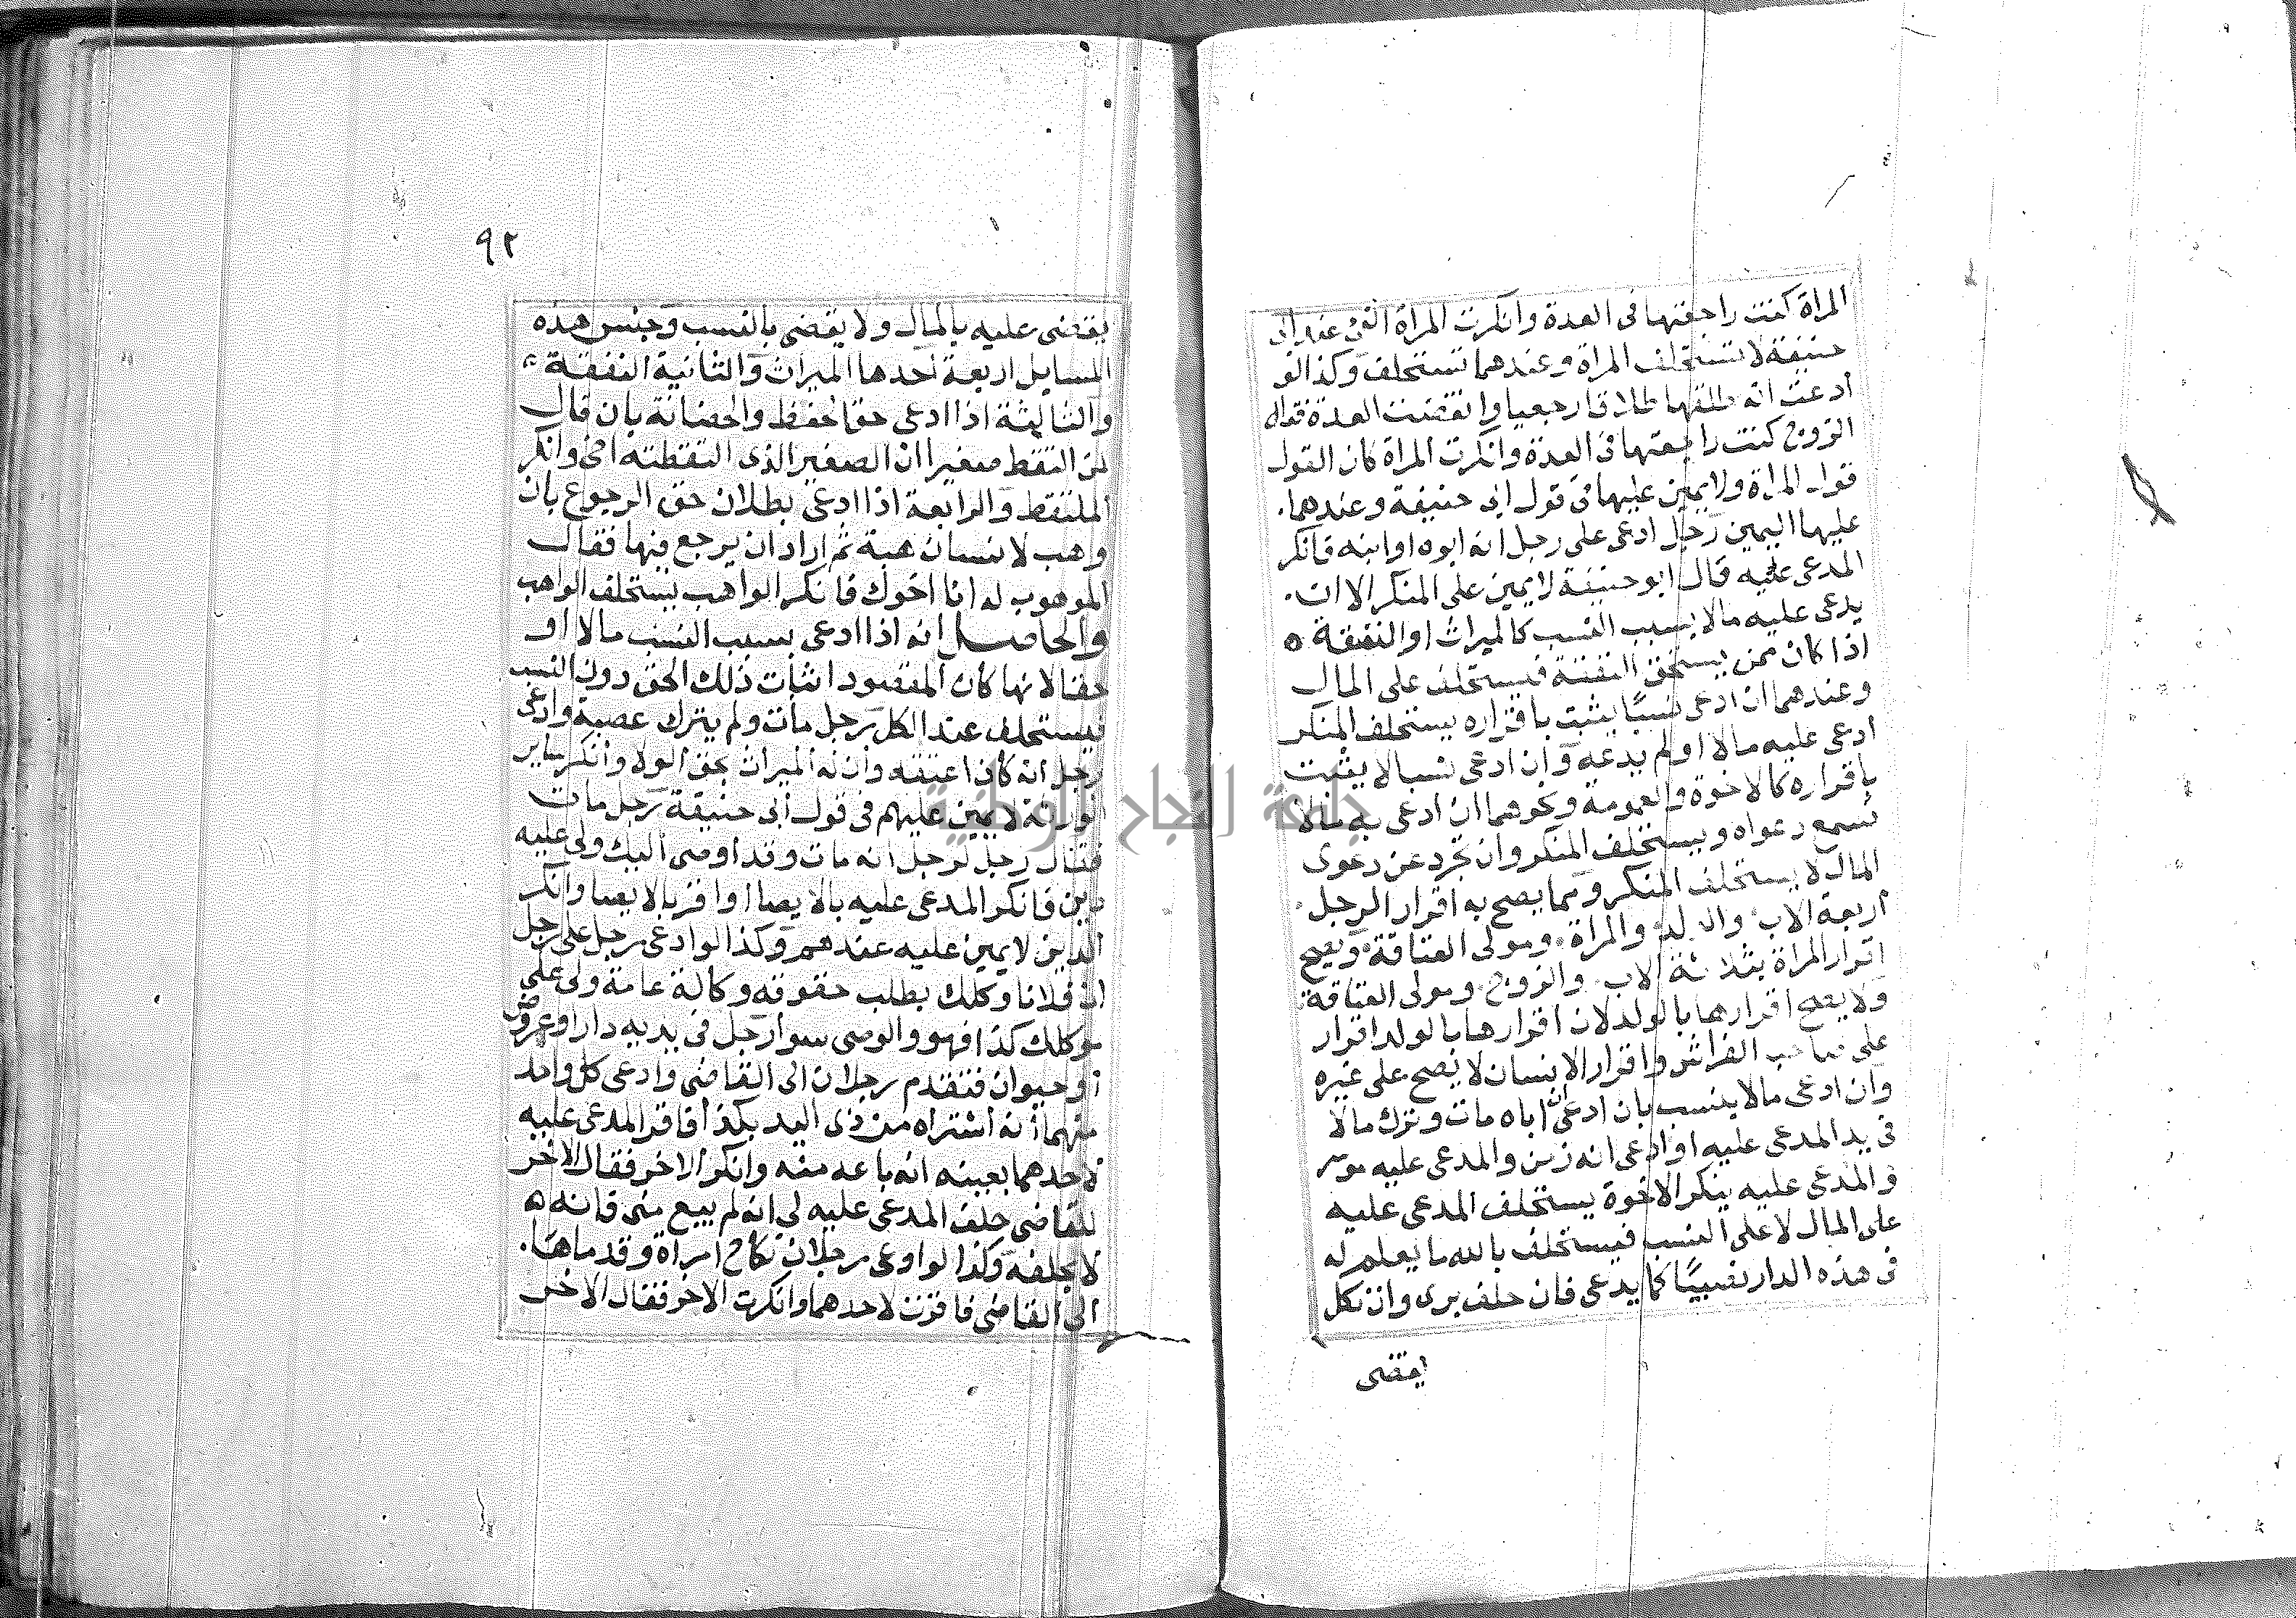 المراة كنت راجعتها فى العدة وانكرت المراة القى عند ابى
حنيفة لا تستحلف المراة وعندهما تستحلف وكذا لو
ادعت انه طلقها طلاقا رجعيا وانقضت العدة فقال
الزوج كنت راجعتها فى العدة وانكرت المراة كان القول
قول المراة ولا يمين عليها فى قول ابى حنيفة وعندهما
عليها اليمين رجل ادعى على رجل انه ابوه او ابنه فانكر
المدعى عليه قال ابو حنيفة لا يمين على المنكر الا ان
يدعى عليه مالا بسبب النسب كالميراث او النفقة ه
اذا كان ممن يستحق النفقة فيستحلف على المال
وعندهما ان ادعى نسبًا يثبت باقراره يستحلف المنكر
ادعى عليه مالا او لم يدعه وان ادعى نسبا لا يثبت
باقراره كالاخوة والعمومة ونحوهما ان ادعى به مالا
تسمع دعواه ويستحلف المنكر وان تجرد عن دعوى
المال لا يستحلف المنكر ومما يصح به اقرار الرجل
اربعة الاب والولد والمراة ومولى العتاقة ويصح
اقرار المراة بثلاثة الاب والزوج ومولى العتاقة
ولا يصح اقرارها بالولد لان اقرارها بالولد اقرار
على صاحب الفراش واقرار الانسان لا يصح على غيره
وان ادعى مالا بنسب بان ادعى ان اباه مات وترك مالا
فى يد المدعى عليه او ادعى انه زمن والمدعى عليه موسر
والمدعى عليه ينكر الاخوة يستحلف المدعى عليه
على المال لا على النسب فيستحلف بالله ما يعلم له
فى هذه الدار نصيبًا كما يدعى فان حلف برى وان نكل
يقضى
٩٢
يقضى عليه بالمال ولا يقضى بالنسب وجنس هذه
المسايل اربعة احدها الميراث والثانية النفقة
والثالثة اذا ادعى حق الحفظ والحضانة بان قال
لمن التقط صغيرا ان الصغير الذى التقطته اخى وانكر
الملتقط والرابعة اذا ادعى بطلان حق الرجوع بان
وهب لانسان هبة ثم اراد ان يرجع فيها فقال
الموهوب له انا اخوك فانكر الواهب يستحلف الواهب
والحاصل انه اذا ادعى بسبب النسب مالا او
حقا لانها كان المقصود اثبات ذلك الحق دون النسب
فيستحلف عند الكل رجل مات ولم يترك عصبة وادعى
رجل انه كان اعتقه وان له الميراث بحق الولا وانكر ساير
الورثة لا يمين عليهم فى قول ابى حنيفة رجل مات
فقال رجل لرجل انه مات وقد اوصى اليك ولى عليه
دين فانكر المدعى عليه بالايصا او اقر بالايصا وانكر
الدين لا يمين عليه عندهم وكذا لو ادعى رجل على رجل
ان فلانا وكلك بطلب حقوقه وكالة عامة ولى على
موكلك كذا فهو والوصى سوا رجل فى يديه دار او عرض
او حيوان فتقدم رجلان الى القاضى وادعى كل واحد
منهما انه اشتراه من ذى اليد بكذا فاقر المدعى عليه
لاحدهما بعينه انه باعه منه وانكر الاخر فقال الاخر
للقاضى حلف المدعى عليه لى انه لم يبيع منى فانه ه
لا يحلفه وكذا لو ادعى رجلان نكاح امراة وقدماها
الى القاضى فاقرت لاحدهما وانكرت الاخر فقال الاخر
جامعة النجاح الوطنية